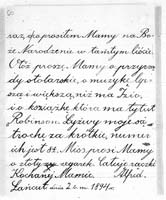 raz, do prosiłem Mamy na Bo-
że Narodzenie w tamtym liście.
Otóż proszę Mamy o przyrzą-
dy stolarskie, o muzykę lep-
szą i większą, niż ma Izio,
i o książkę która ma tytuł
Robinson. Łyżwy moje są
trochę za krótkie, numer
ich jest 22. Moss prosi Mamy
o złoty zegarek. Całuję rączki
Kochanej Mamie
Łańcut dnia 2. 1894 r.